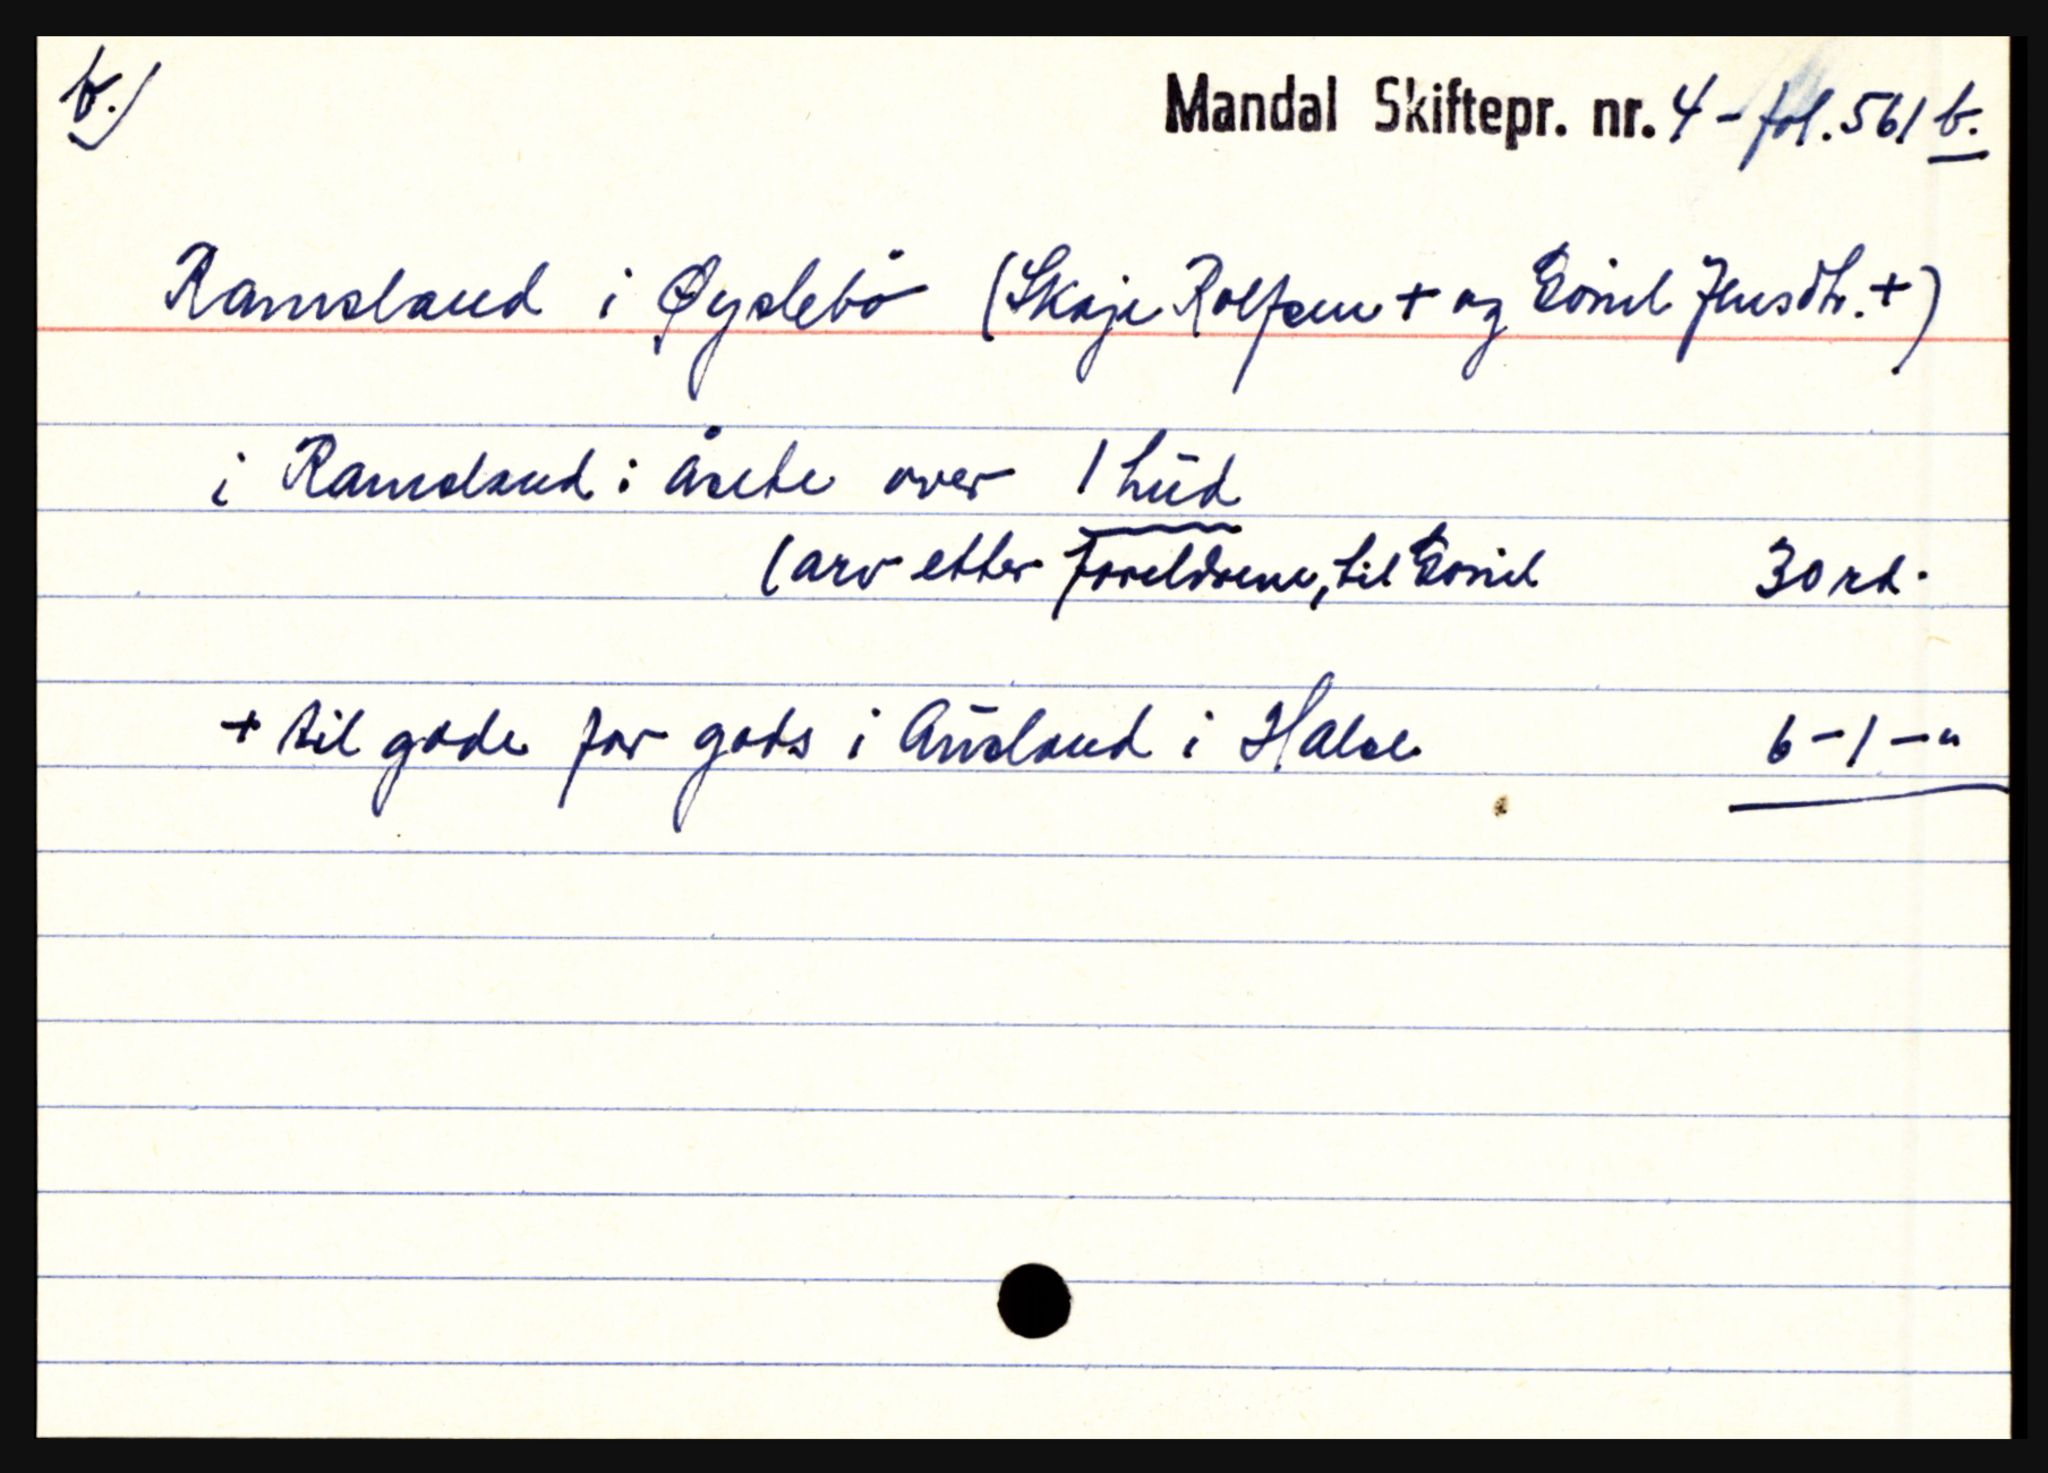 b.)
Mandal Skiftepr. nr. 4 - fol. 561 b.
Ramsland i Øyslebö (Skaje Rolfsen + og Gönil Jensdtr. +)
i Ramsland: åsete over 1 hūd
(arv etter foreldrene, til Gönil 30 rd.
+ til gode for gods i Aūsland i Halse 6 - 1 - "